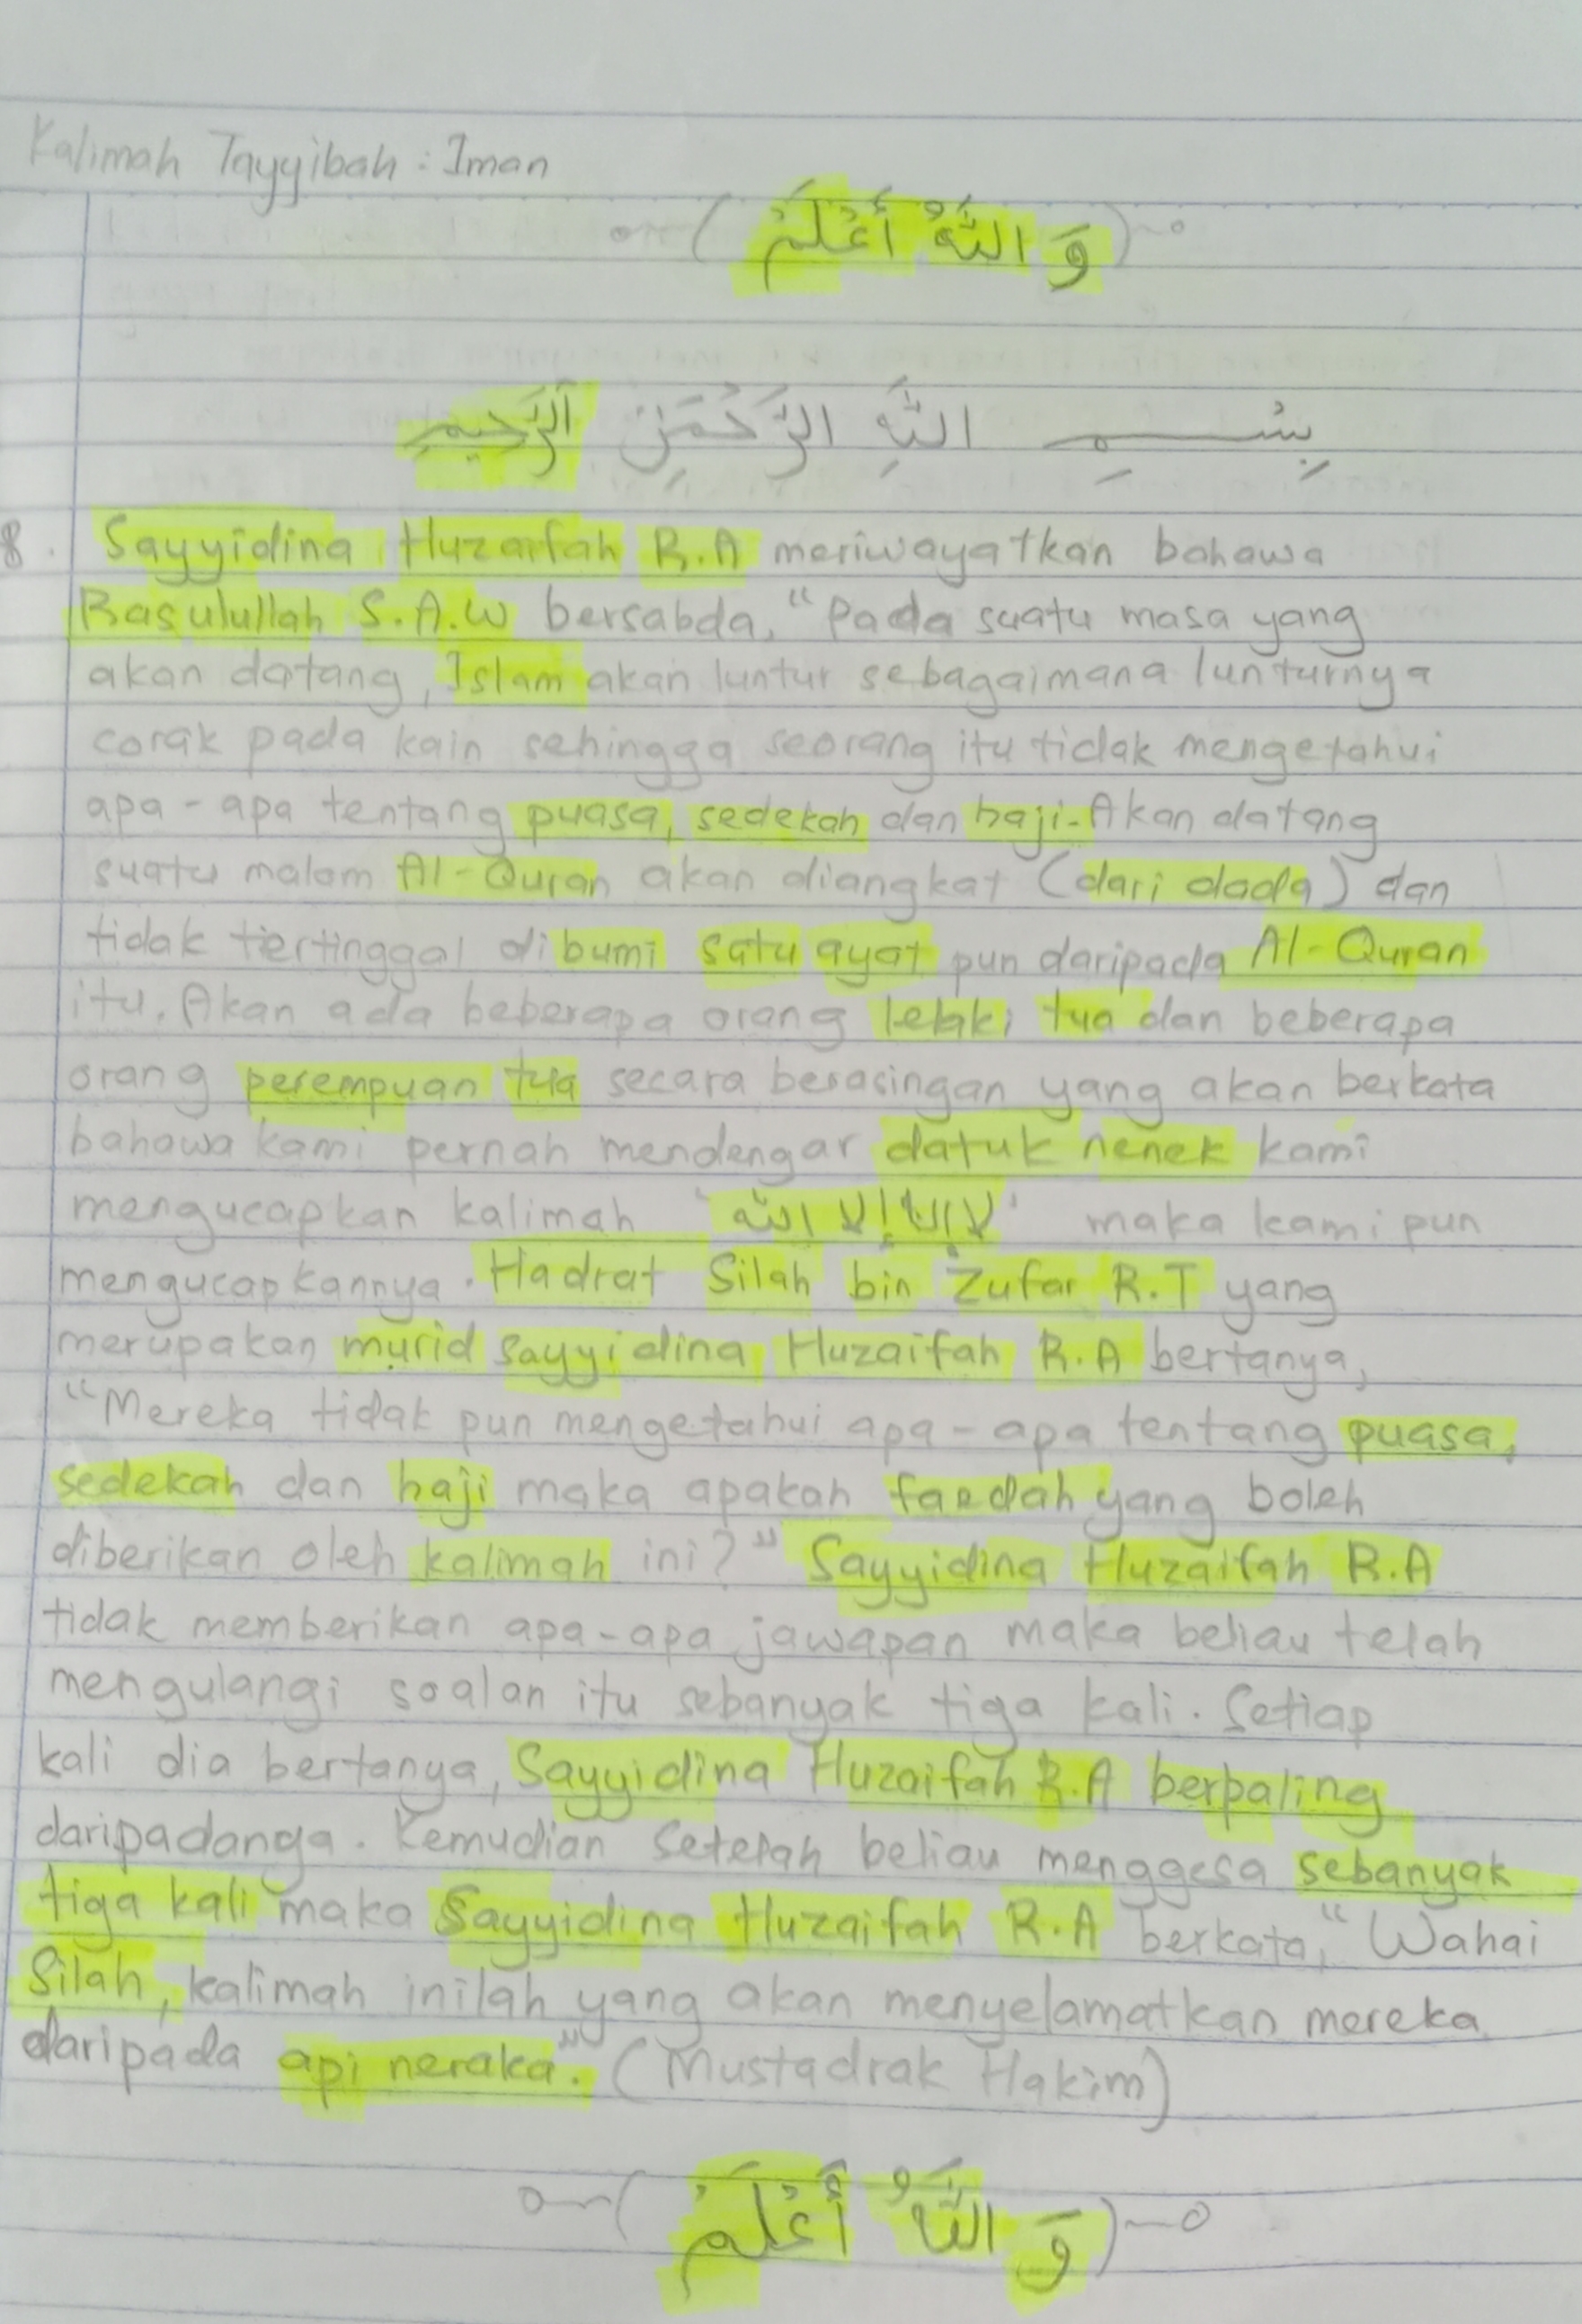 Kalimah Tayyibah : Iman
(وَ اللَّهُ أَعْلَمُ)
بِسْمِ اللَّهِ الرَّحْمَنِ الرَّحِيمِ
8. Sayyidina Huzaifah R.A meriwayatkan bahawa
Rasulullah S.A.W bersabda, "Pada suatu masa yang
akan datang, Islam akan luntur sebagaimana lunturnya
corak pada kain sehingga seorang itu tidak mengetahui
apa-apa tentang puasa, sedekah dan haji. Akan datang
suatu malam Al-Quran akan diangkat (dari dada) dan
tidak tertinggal dibumi satu ayat pun daripada Al-Quran
itu. Akan ada beberapa orang lelaki tua dan beberapa
orang perempuan tua secara berasingan yang akan berkata
bahawa kami pernah mendengar datuk nenek kami
mengucapkan kalimah 'لا إله إلا الله' maka kami pun
mengucapkannya. Hadrat Silah bin Zufar R.T yang
merupakan murid Sayyidina Huzaifah R.A bertanya,
"Mereka tidak pun mengetahui apa-apa tentang puasa,
sedekah dan haji maka apakah faedah yang boleh
diberikan oleh kalimah ini?" Sayyidina Huzaifah R.A
tidak memberikan apa-apa jawapan maka beliau telah
mengulangi soalan itu sebanyak tiga kali. Setiap
kali dia bertanya, Sayyidina Huzaifah R.A berpaling
daripadanga. Kemudian setelah beliau menggesa sebanyak
tiga kali maka Sayyidina Huzaifah R.A berkata, "Wahai
Silah, kalimah inilah yang akan menyelamatkan mereka
daripada api neraka." (Mustadrak Hakim)
(وَ اللَّهُ أَعْلَمُ)